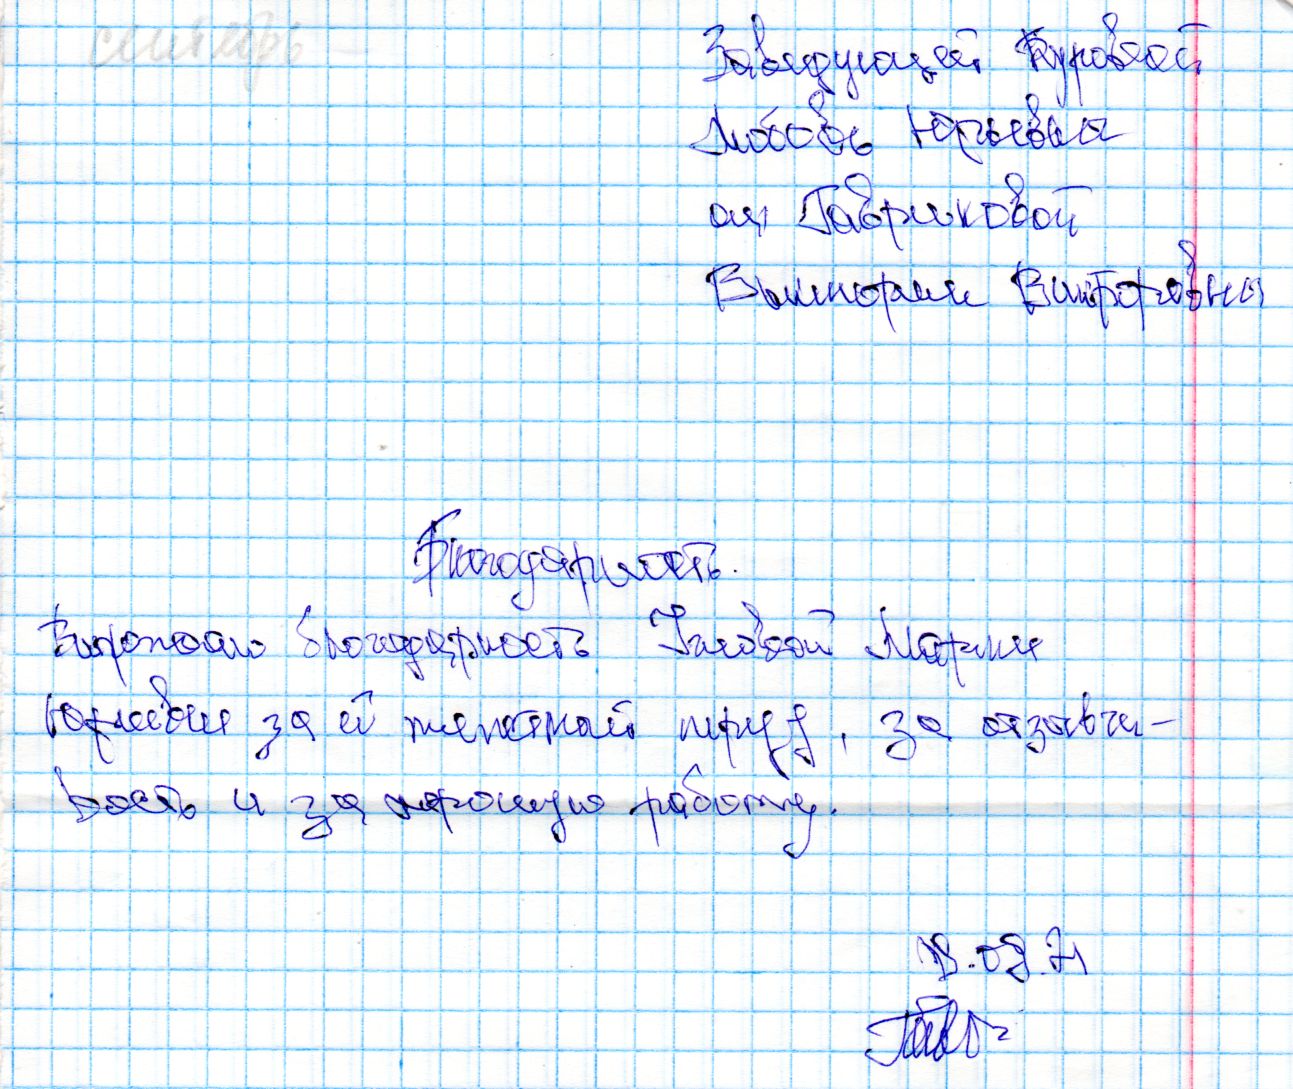 сентябрь
Заведующей Куровой
Любовь Юрьевна
от Гавриковой
Виктории Викторовны
Благодарность.
Выражаю благодарность Марии
Юрьевне за её тяжелый труд, за отзывчи-
вость и за хорошую работу.
13.09.21